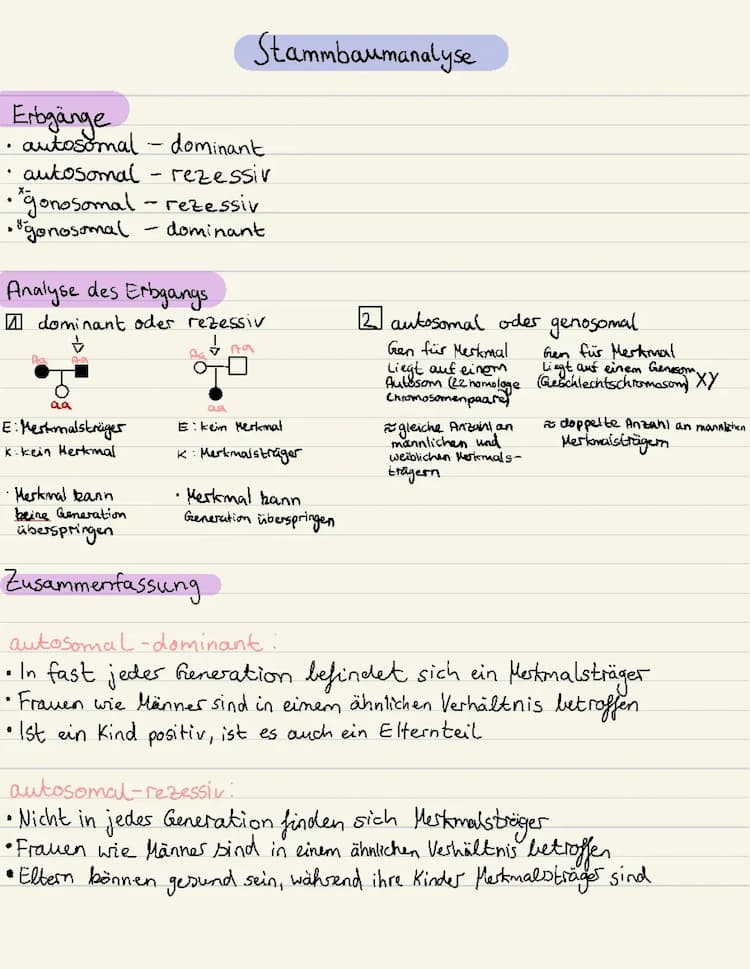 Stammbaumanalyse
Erbgänge
• autosomal – dominant
• autosomal – rezessiv
• x-gonosomal – rezessiv
• gonosomal – dominant
Analyse des Erbgangs
1 dominant oder rezessiv
Aa Aa
aa
E: Merkmalsträger
K: kein Merkmal
• Merkmal kann
keine Generation
überspringen
Aa Aa
aa
E: kein Merkmal
K: Merkmalsträger
• Merkmal kann
Generation überspringen
2 autosomal oder genosomal
Gen für Merkmal
Liegt auf einem
Autosom (22 homologe
Chromosomenpaare)
≈ gleiche Anzahl an
männlichen und
weiblichen Merkmals-
trägern
Gen für Merkmal
Liegt auf einem Genosom
(Geschlechtschromosom) XY
≈ doppelte Anzahl an männlichen
Merkmalsträgern
Zusammenfassung
autosomal-dominant:
• In fast jeder Generation befindet sich ein Merkmalsträger
• Frauen wie Männer sind in einem ähnlichen Verhältnis betroffen
• Ist ein Kind positiv, ist es auch ein Elternteil
autosomal-rezessiv:
• Nicht in jedes Generation finden sich Merkmalsträger
• Frauen wie Männer sind in einem ähnlichen Verhältnis betroffen
• Eltern können gesund sein, während ihre Kinder Merkmalsträger sind